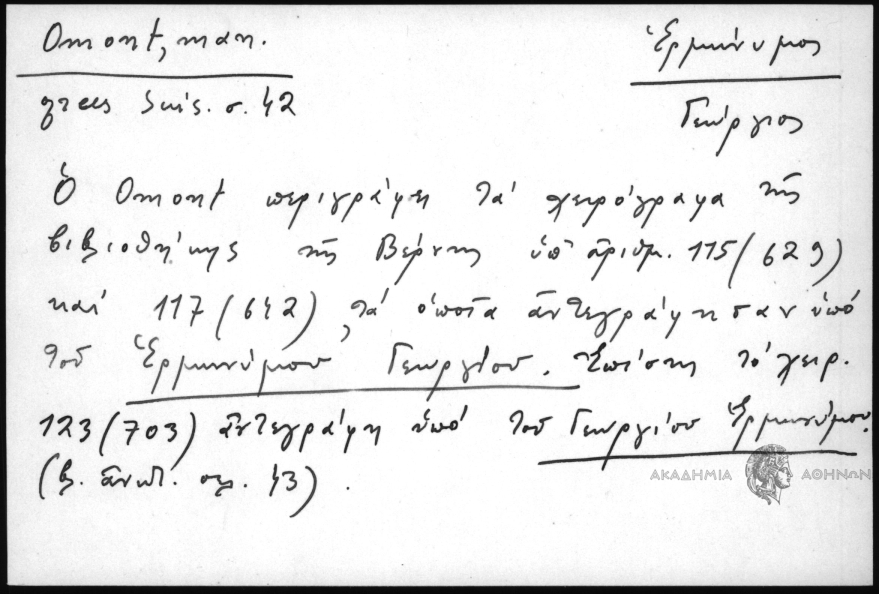 Omont, man.
grecs Suis. σ. 42
Ἑρμώνυμος
Γεώργιος
Ὁ Omont περιγράφει τά χειρόγραφα τῆς
βιβλιοθήκης τῆς Βέρνης ὑπ' ἀριθμ. 115 (629)
καί 117 (642), τά ὁποῖα ἀντεγράφησαν ὑπό
τοῦ Ἑρμωνύμου Γεωργίου. Ἐπίσης τό χειρ.
123 (703) ἀντεγράφη ὑπό τοῦ Γεωργίου Ἑρμωνύμου.
(β. ἀνωτ. σελ. 43).
ΑΚΑΔΗΜΙΑ ΑΘΗΝΩΝ